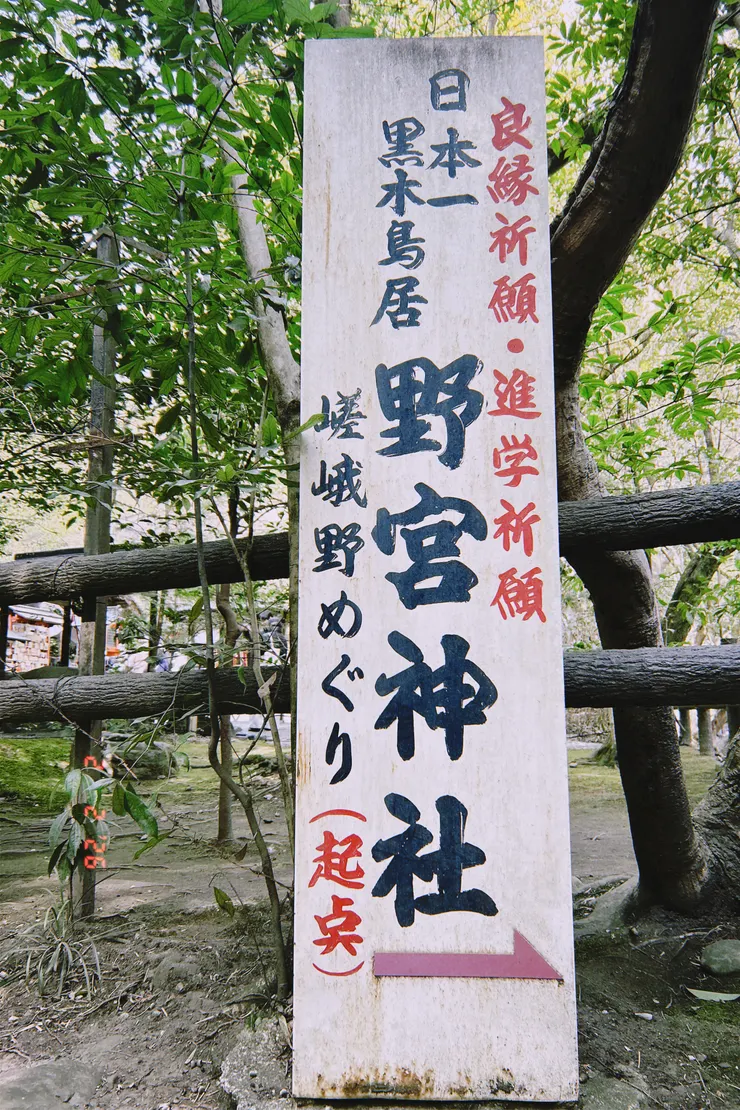 良縁祈願・進学祈願
日本一
黒木鳥居
野宮神社
嵯峨野めぐり(起点)